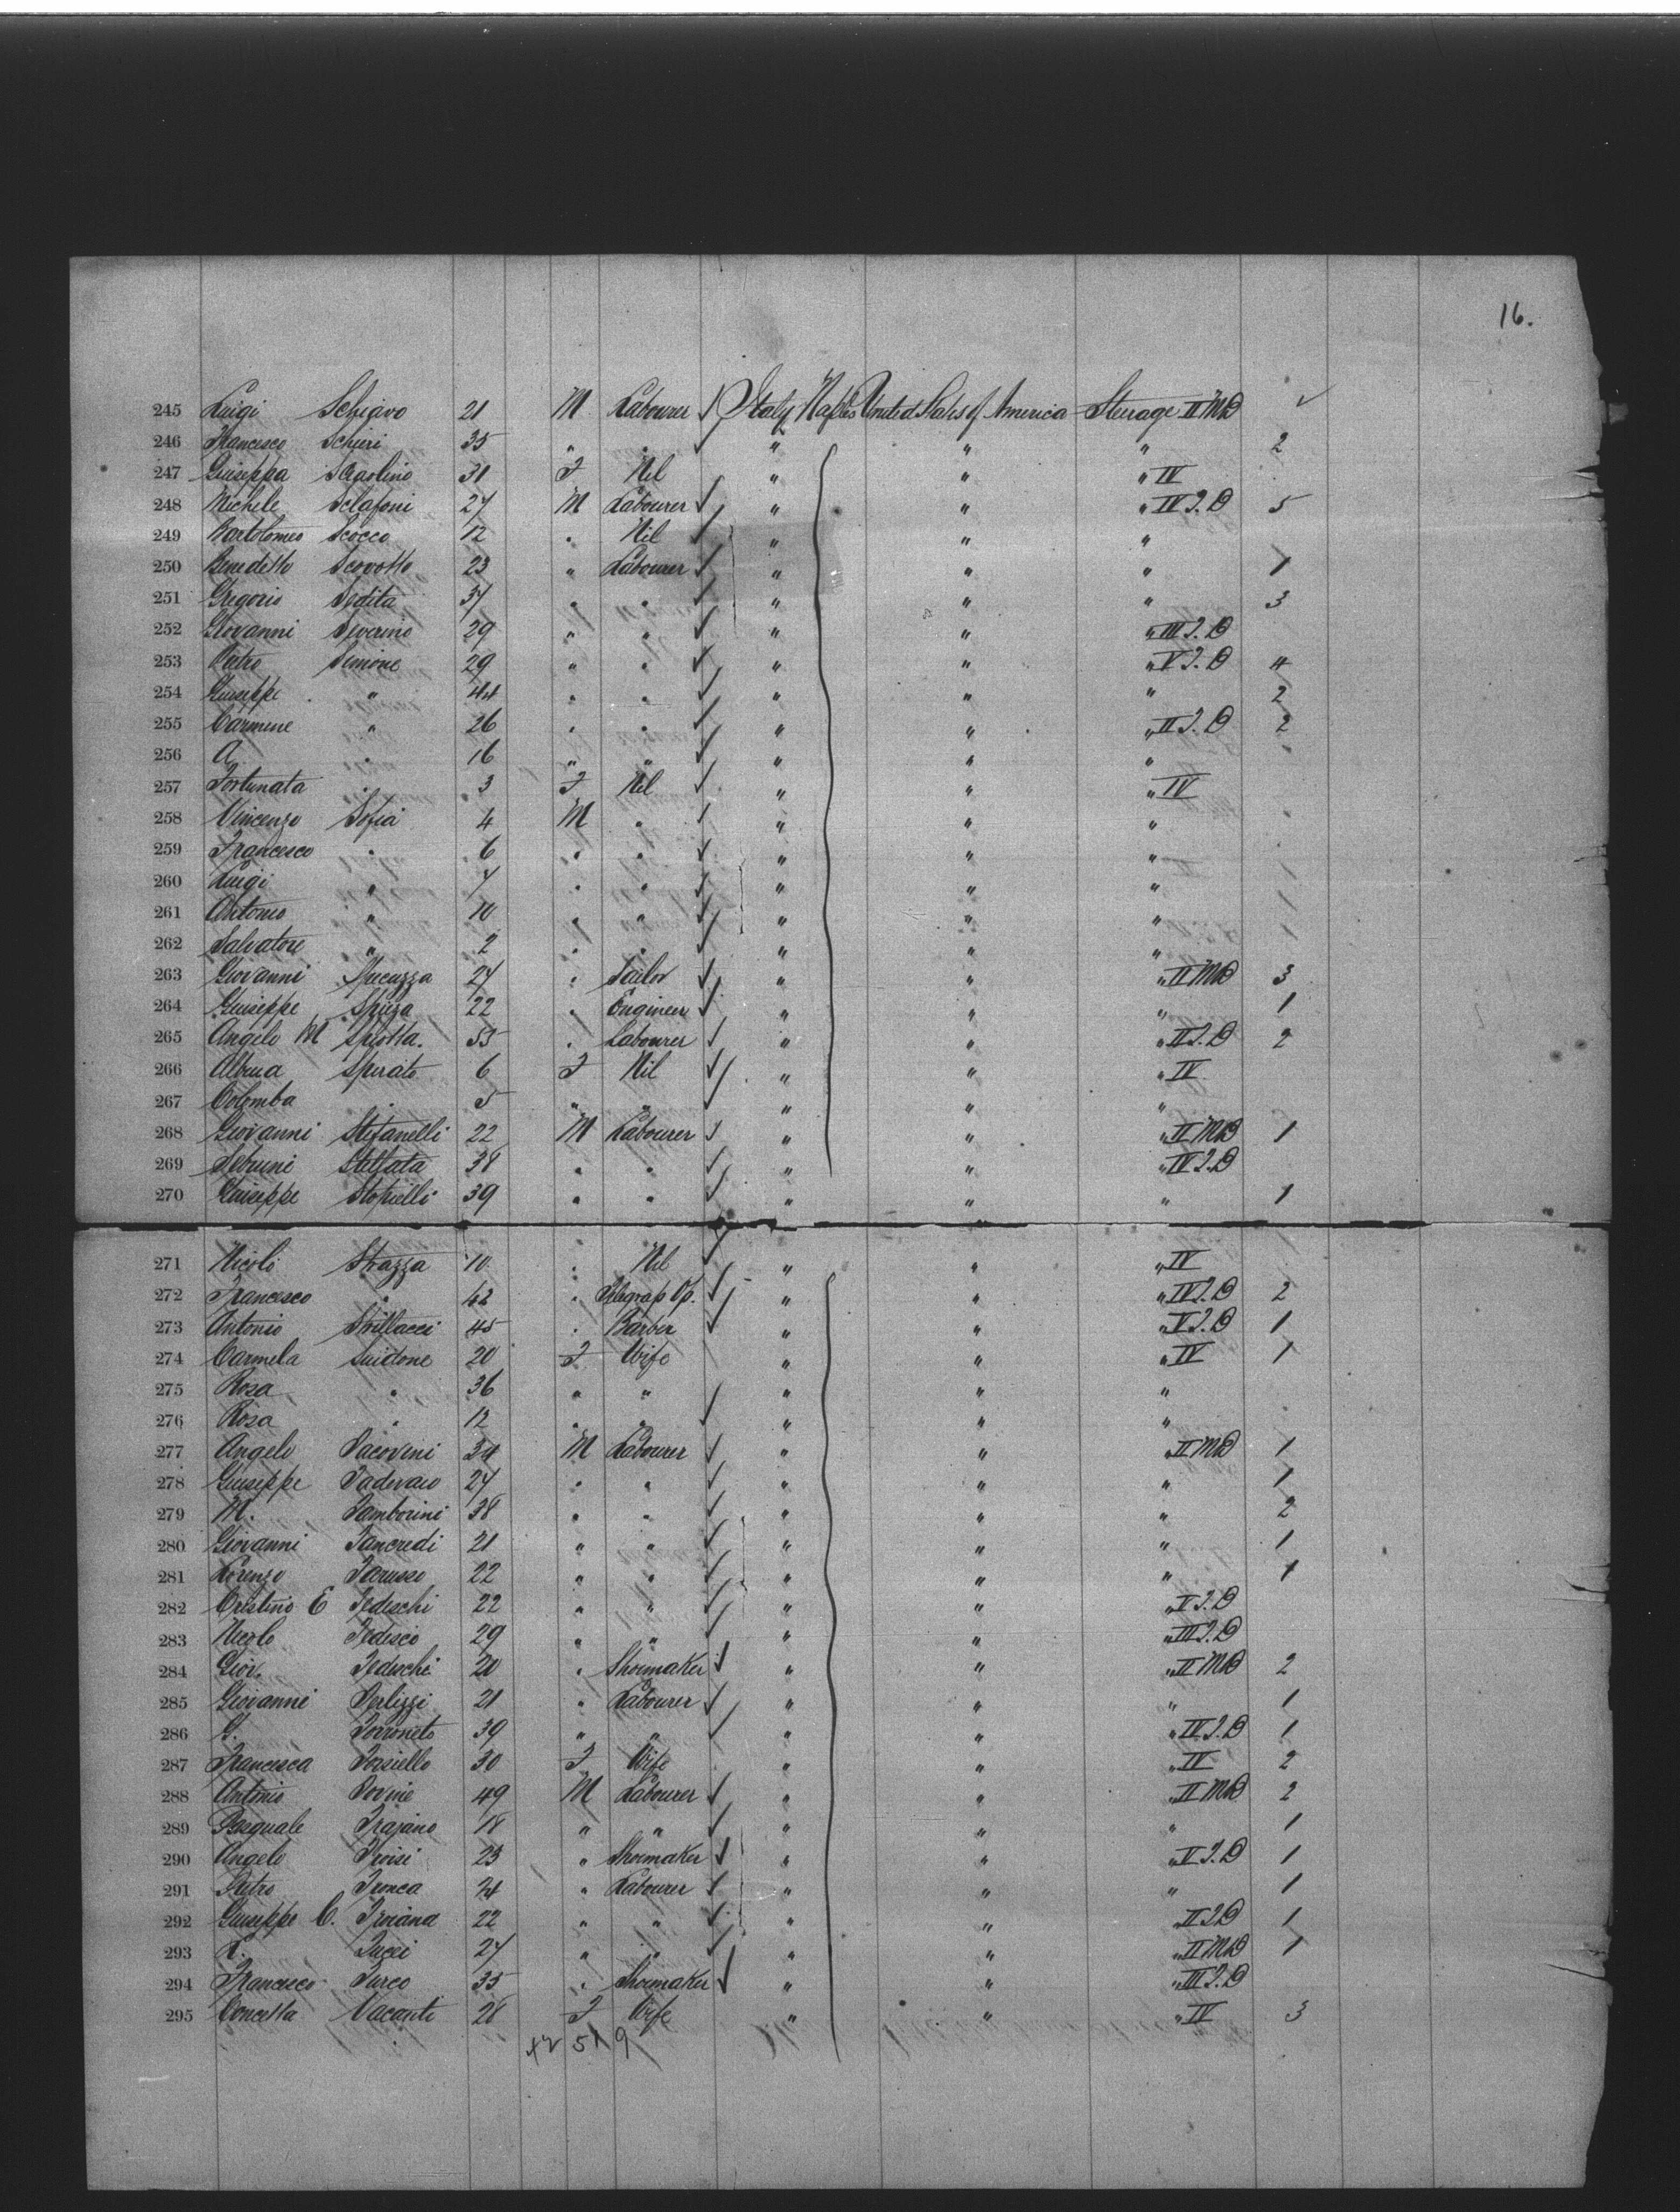 16.
245 Luigi Schiavo 21 M Labourer ✓ Italy Naples United States of America Steerage II MD ✓
246 Francesco Schieri 35 " " ✓ " " " 2
247 Giuseppa 31 F Nil " " " IV
248 Michele Sclafani 27 M Labourer ✓ " " " IV S.D 5
249 Bartolomeo Scocco 12 " Nil ✓ " " "
250 Benedetto Scovotto 23 " Labourer ✓ " " " 1
251 Gregorio Sedita 37 " " ✓ " " " 3
252 Giovanni Severino 29 " " ✓ " " " III S.D
253 Pietro Simone 29 " " ✓ " " " V S.D 4
254 Giuseppe " 44 " " ✓ " " " 2
255 Carmine " 26 " " ✓ " " " II S.D 2
256 A. " 16 " " ✓ " " "
257 Fortunata " 3 F Nil ✓ " " " IV
258 Vincenzo Sofia 4 M " ✓ " " "
259 Francesco " 6 " " ✓ " " "
260 Luigi " 7 " " ✓ " " "
261 Antonio " 10 " " ✓ " " "
262 Salvatore " 2 " " ✓ " " "
263 Giovanni Specuzza 27 " Sailor ✓ " " " II MD 3
264 Giuseppe Spieza 22 " Engineer ✓ " " " 1
265 Angelo M Spiotta. 53 " Labourer ✓ " " " II S.D 2
266 Albina Spirato 6 F Nil ✓ " " " IV
267 Colomba " 5 " " ✓ " " "
268 Giovanni Stefanelli 22 M Labourer ✓ " " " II MD 1
269 Stellata 38 " " ✓ " " " IV S.D
270 Giuseppe Stopielli 39 " " ✓ " " " 1
271 Nicolo Strazza 10 " Nil ✓ " " " IV
272 Francesco " 42 " Telegrap Op. ✓ " " " IV S.D 2
273 Antonio Strillacci 45 " Barber ✓ " " " V S.D 1
274 Carmela Suidone 20 F Wife " " " IV 1
275 Rosa " 36 " " " " "
276 Rosa " 12 " " ✓ " " "
277 Angelo Tacovini 34 M Labourer ✓ " " " II MD 1
278 Giuseppe 27 " " ✓ " " " 1
279 M. Tamborini 38 " " ✓ " " " 2
280 Giovanni Tancredi 21 " " ✓ " " " 1
281 Lorenzo Tarusso 22 " " ✓ " " " 1
282 Cristino E Tedeschi 22 " " ✓ " " " V S.D
283 Nicolo Tedesco 29 " " ✓ " " " III S.D
284 Giov. Tedeschi 20 " Shoemaker ✓ " " " II MD 2
285 Giovanni Terlizzi 21 " Labourer ✓ " " " 1
286 G. Torroneto 39 " " ✓ " " " IV S.D 1
287 Francesca Torsiello 30 F Wife " " " IV 2
288 Antonio Tovine 49 M Labourer ✓ " " " II MD 2
289 Pasquale Trajano 18 " " ✓ " " " 1
290 Angelo Troisi 23 " Shoemaker ✓ " " " V S.D 1
291 Pietro Tronca 24 " Labourer ✓ " " " 1
292 Giuseppe C. Troiana 22 " " ✓ " " " II S.D 1
293 Tucci 27 " " ✓ " " " II MD 1
294 Francesco Turco 35 " Shoemaker ✓ " " " III S.D
295 Concetta Vacanti 28 F Wife " " " IV 3
42 51 9